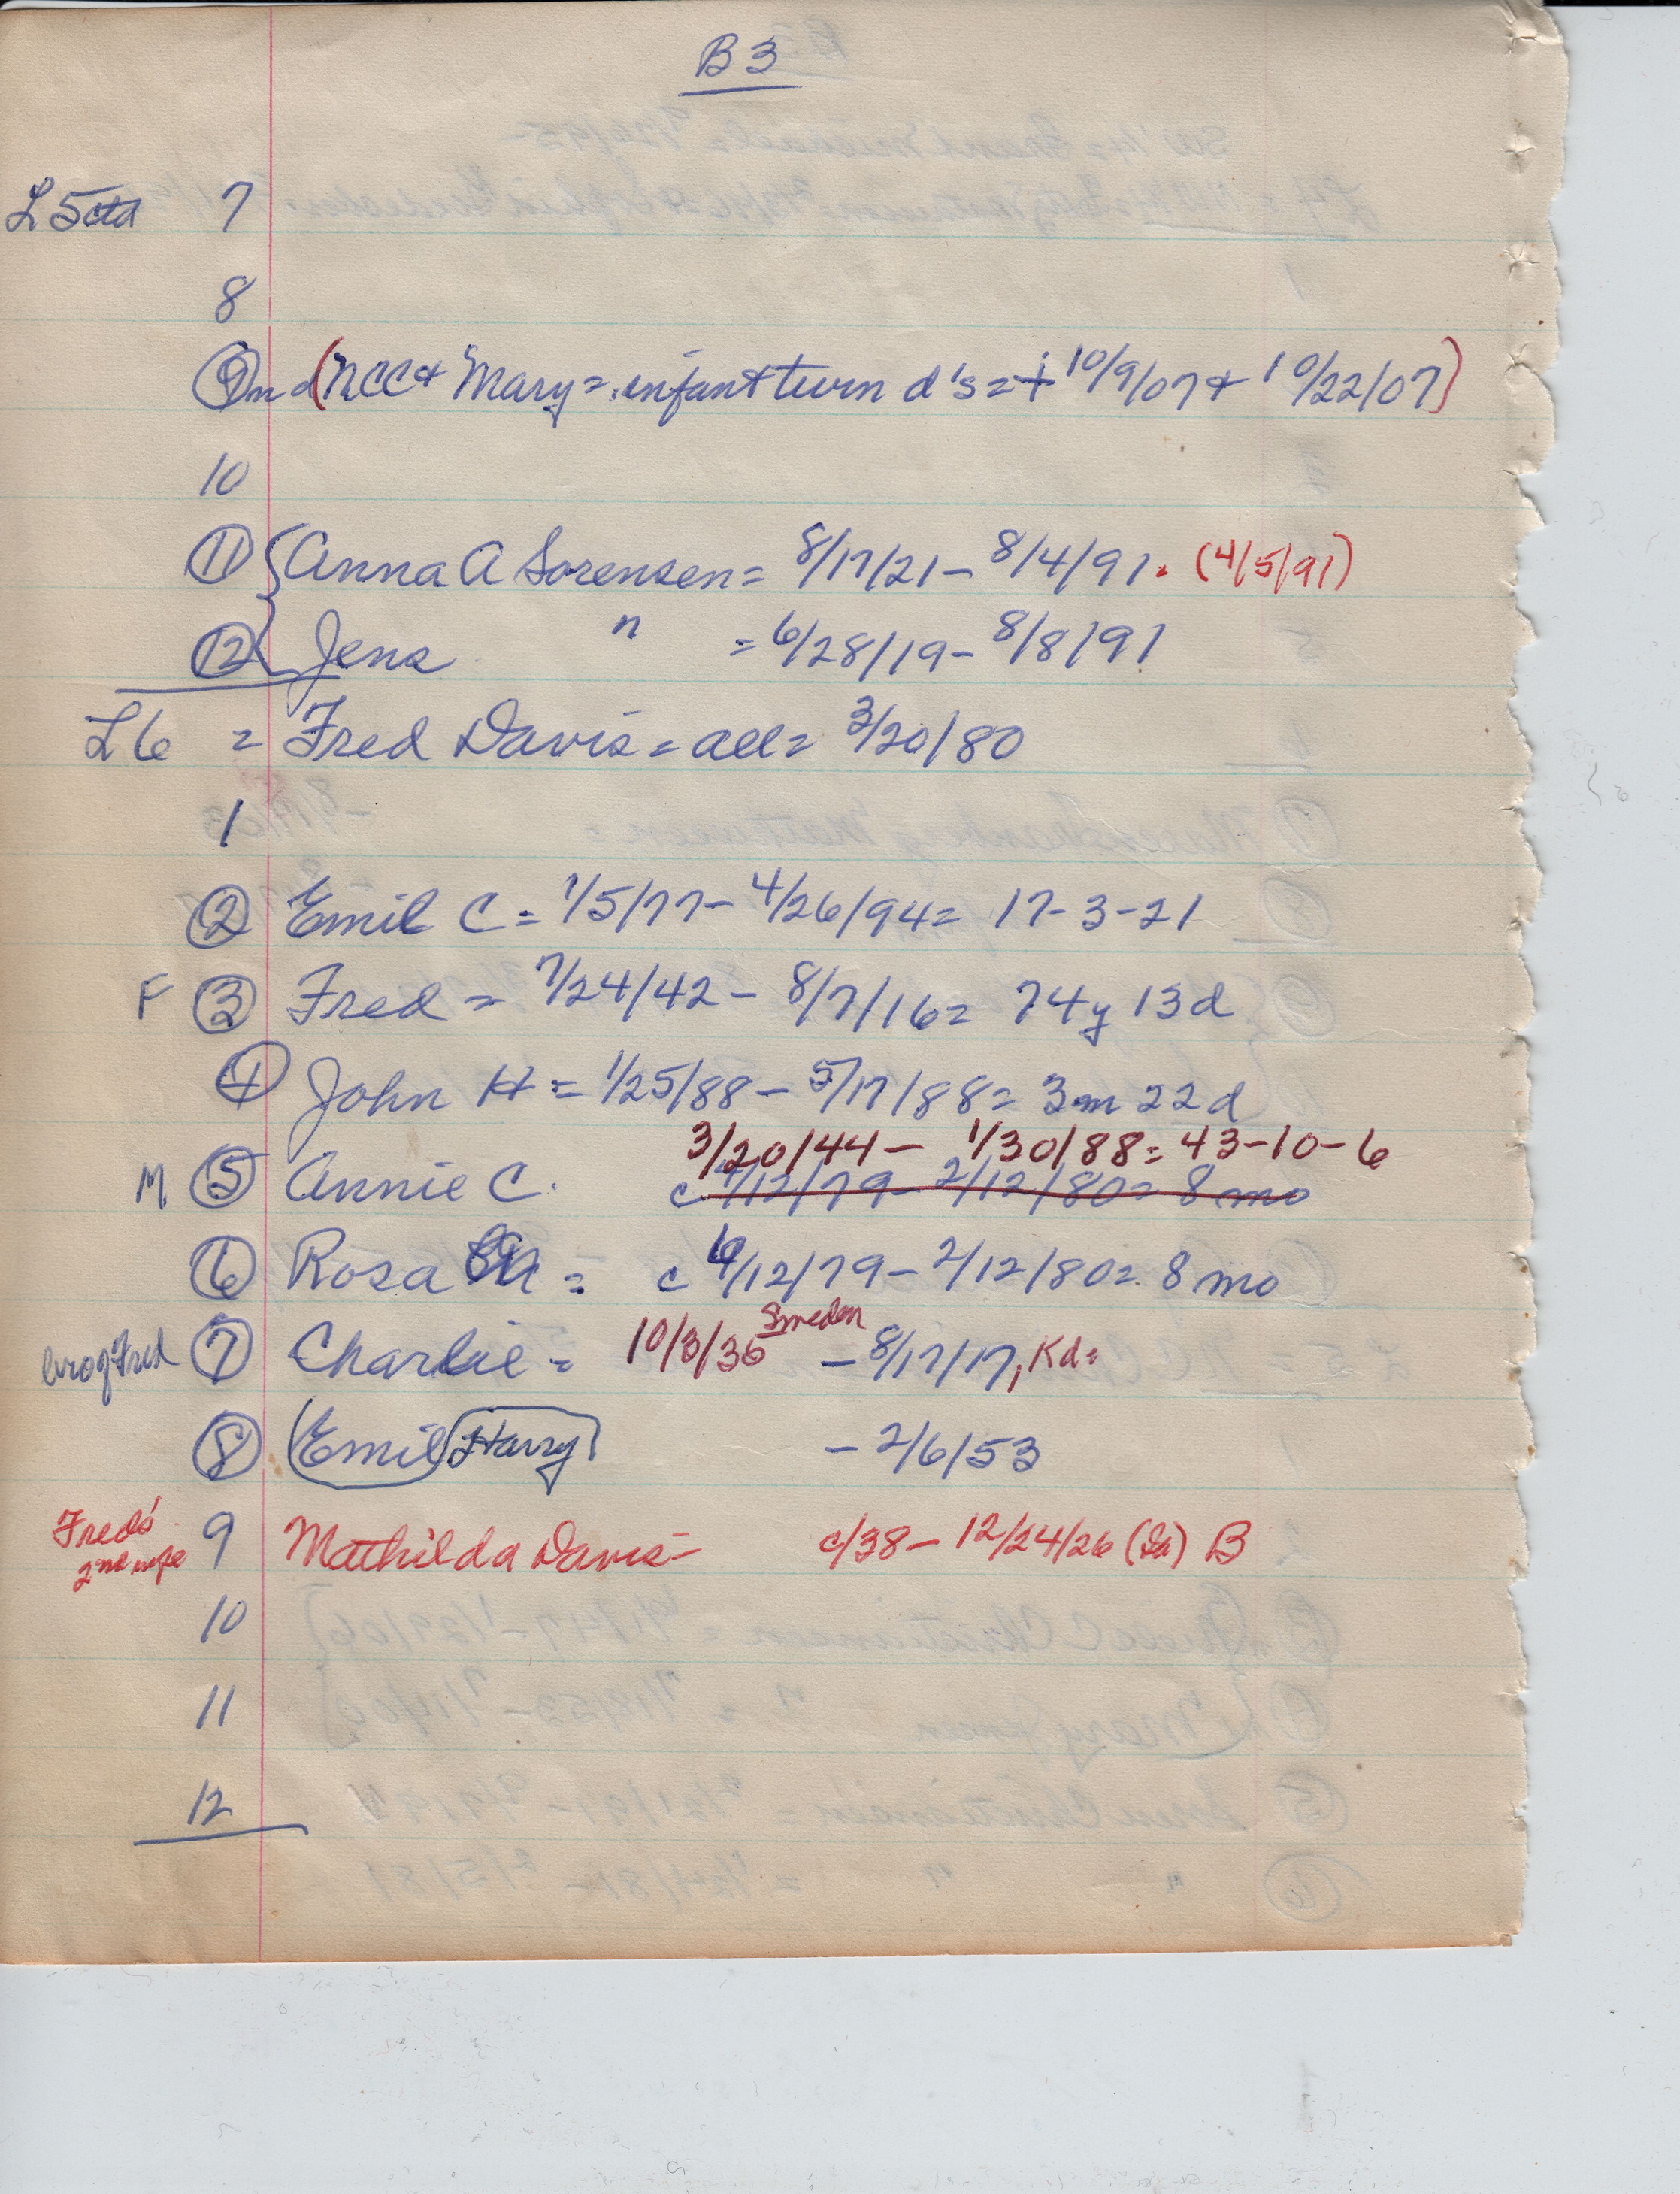 B 3
L 5 ctd 7
8
9 (NCC + Mary = infant twin d's = + 10/9/07 + 10/22/07)
10
11 { Anna A Sorensen = 8/17/21 - 8/4/91. (4/5/91)
12 { Jens " = 6/28/19 - 8/8/91
L 6 = Fred Davis = all = 3/20/80
1
2 Emil C = 1/5/77 - 4/26/94 = 17-3-21
F 3 Fred = 7/24/42 - 8/7/16 = 74y 13d
4 John H = 1/25/88 - 5/17/88 = 3m 22d
3/20/44 - 1/30/88 = 43-10-6
M 5 Annie C. c 4/12/79 - 2/12/80 = 8 mo
6 Rosa = c 6/12/79 - 2/12/80 = 8 mo
Sweden
bro of Fred 7 Charlie = 10/3/36 - 8/17/17, Kd =
8 (Emil) Harry - 2/6/53
Fred's 9 Mathilda Davis - c/38 - 12/24/26 (Ia) B
2nd wife
10
11
12